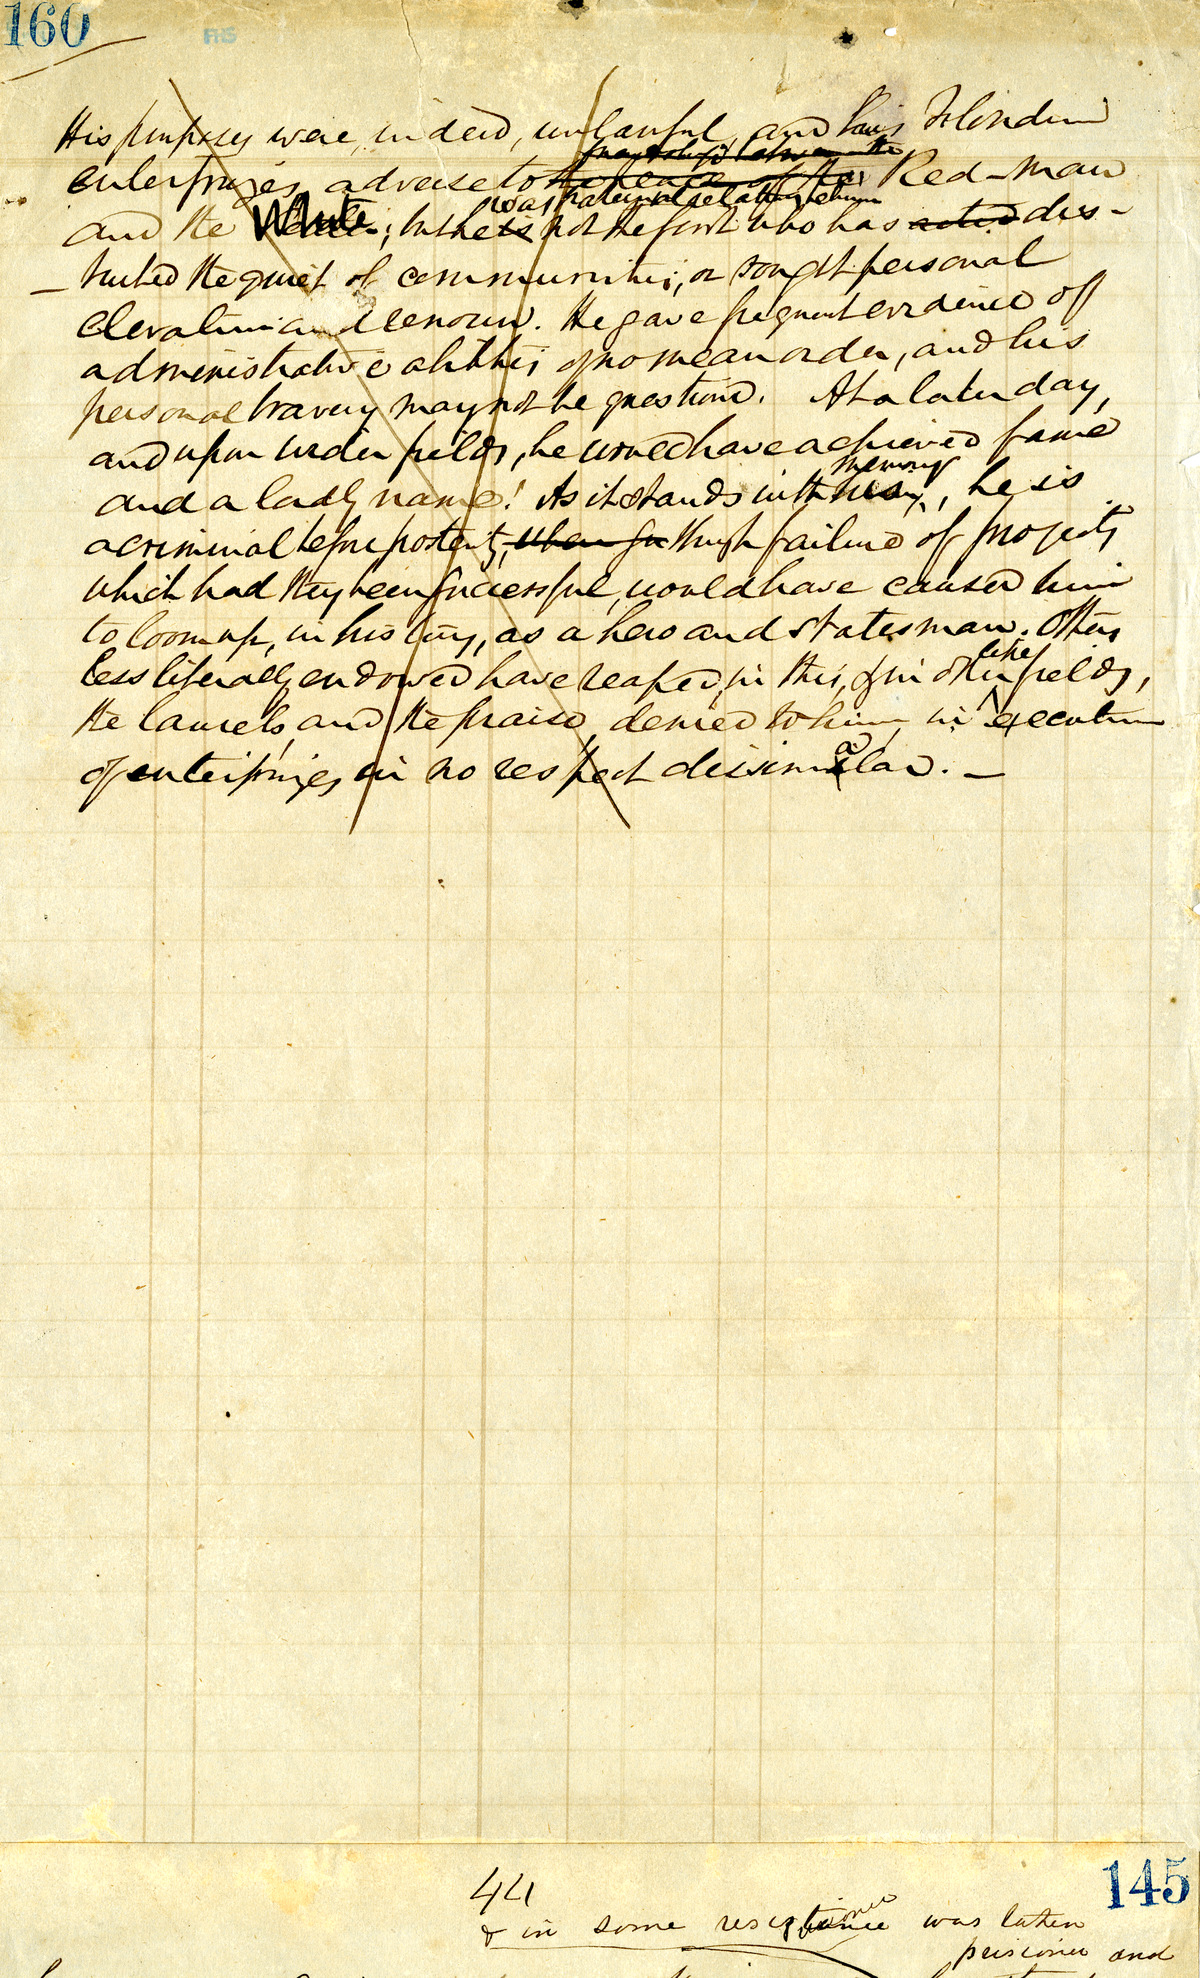 160
His purposes were, indeed, unlawful, and his Floridian
enterprizes, adverse to the peace of the Red-man
was fraternal relations between
and the White; but he is not the first who has acted dis-
-turbed the quiet of communities, or sought personal
elevation and renown. He gave frequent evidence of
administrative abilities of no mean order, and his
personal bravery may not be questioned. At a later day,
and upon wider fields, he would have achieved fame
and a lordly name! As it stands in
memory
, he is
a criminal before posterity, when for through failure of projects
which had they been successful, would have caused him
to loom up, in history, as a hero and statesman. Others
like
less liberally endowed have reaped, in this, & in other fields,
the laurels, and the praise, denied to him, in execution
of enterprizes, in no respect dissimilar. —
44
145
& in some resistance was taken
prisoner and